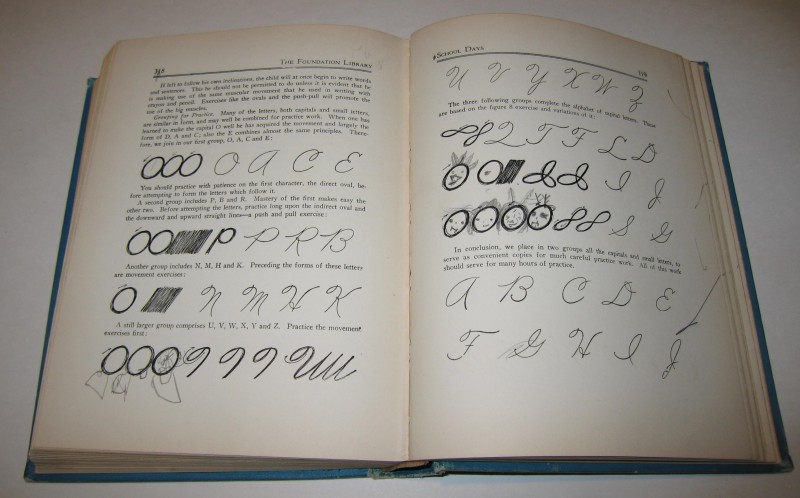 THE FOUNDATION LIBRARY
If left to follow his own inclinations, the child will at once begin to write words
and sentences. This he should not be permitted to do unless it is evident that he
is making use of the same muscular movement that he used in writing with
crayon and pencil. Exercises like the ovals and the push-pull will promote the
use of the big muscles.
Grouping for Practice. Many of the letters, both capitals and small letters,
are similar in form, and may well be combined for practice work. When one has
learned to make the capital O well he has acquired the movement and largely the
form of D, A and C; also the E combines almost the same principles. There-
fore, we join in our first group, O, A, C and E:
O A C E
You should practice with patience on the first character, the direct oval, be-
fore attempting to form the letters which follow it.
A second group includes P, B and R. Mastery of the first makes easy the
other two. Before attempting the letters, practice long upon the indirect oval and
the downward and upward straight lines—a push and pull exercise:
P P R B
Another group includes N, M, H and K. Preceding the forms of these letters
are movement exercises:
N M H K
A still larger group comprises U, V, W, X, Y and Z. Practice the movement
exercises first:
SCHOOL DAYS
U V Y X W Z
The three following groups complete the alphabet of capital letters. These
are based on the figure 8 exercise and variations of it:
Q T F L D
I J
S G
In conclusion, we place in two groups all the capitals and small letters, to
serve as convenient copies for much careful practice work. All of this work
should serve for many hours of practice.
A B C D E
F G H I J